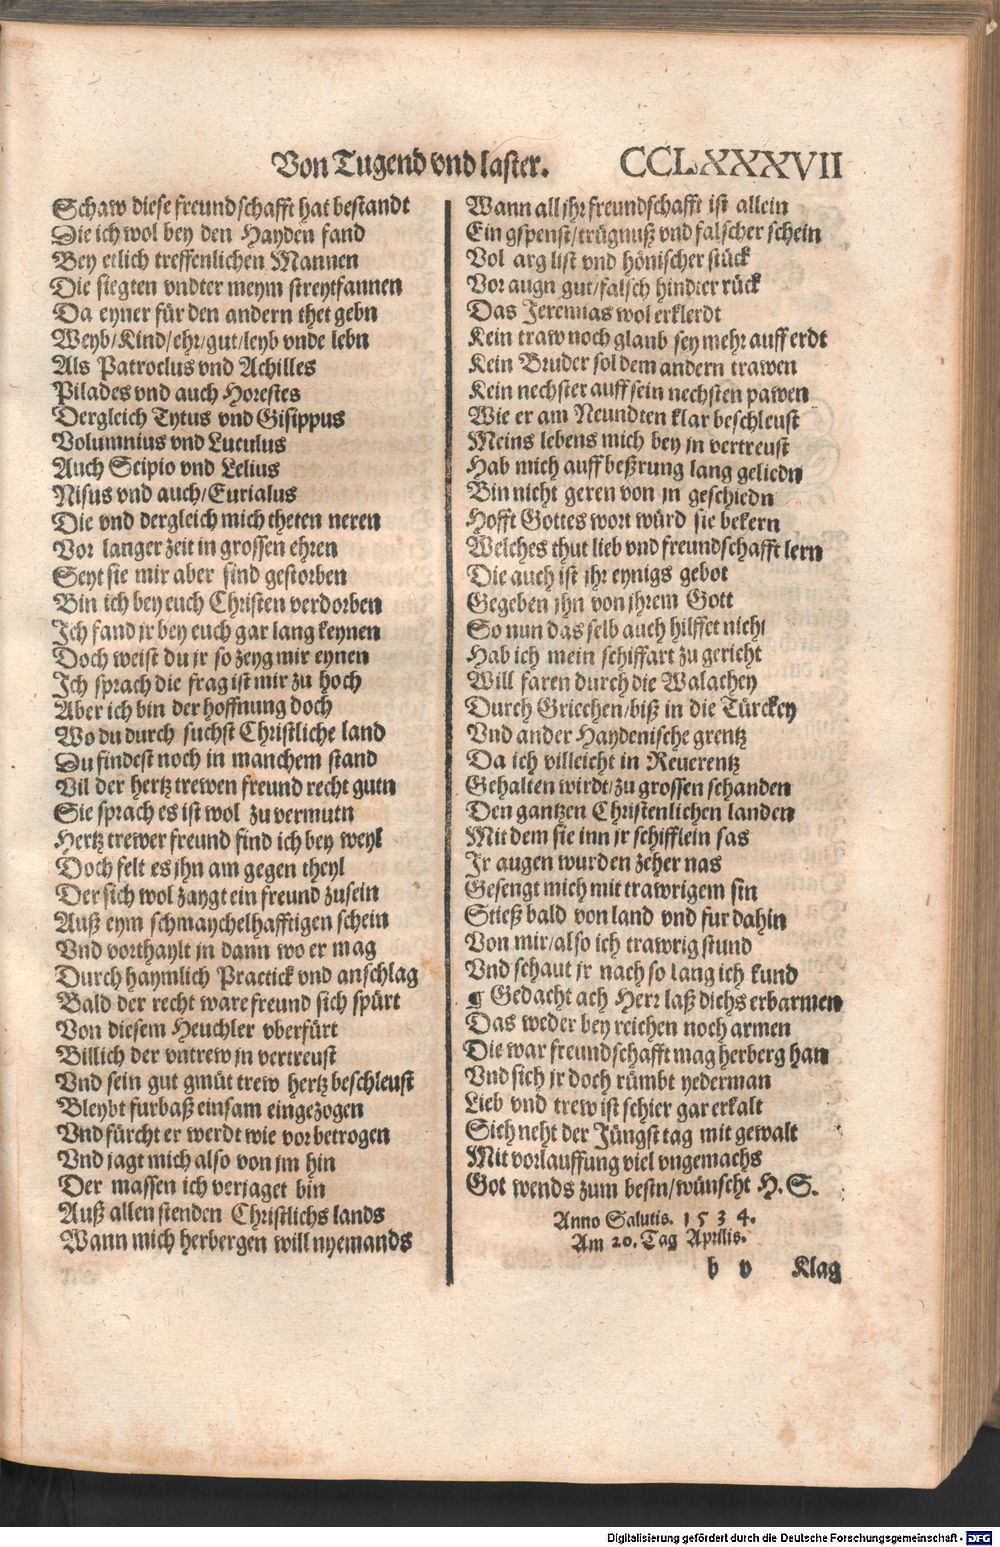 Von Tugend vnd laster. CCLXXXVII
Schaw diese freundschafft hat bestandt
Die ich wol bey den Hayden fand
Bey etlich treffenlichen Mannen
Die siegten vndter meym streytfannen
Da eyner für den andern thet gebn
Weyb/Kind/ehr/gut/leyb vnde lebn
Als Patroclus vnd Achilles
Pilades vnd auch Horestes
Dergleich Tytus vnd Gisippus
Volumnius vnd Luculus
Auch Scipio vnd Lelius
Nisus vnd auch/Eurialus
Die vnd dergleich mich theten neren
Vor langer zeit in grossen ehren
Seyt sie mir aber sind gestorben
Bin ich bey euch Christen verdorben
Ich fand jr bey euch gar lang keynen
Doch weist du jr so zeyg mir eynen
Ich sprach die frag ist mir zu hoch
Aber ich bin der hoffnung doch
Wo du durch suchst Christliche land
Du findest noch in manchem stand
Vil der hertz trewen freund recht gutn
Sie sprach es ist wol zu vermutn
Hertz trewer freund find ich bey weyl
Doch felt es jhn am gegen theyl
Der sich wol zaygt ein freund zusein
Auß eym schmaychelhafftigen schein
Vnd vorthaylt jn dann wo er mag
Durch haymlich Practick vnd anschlag
Bald der recht ware freund sich spürt
Von diesem Heuchler vberfürt
Billich der vntrew jn vertreust
Vnd sein gut gmüt trew hertz beschleust
Bleybt furbaß einsam eingezogen
Vnd fürcht er werdt wie vor betrogen
Vnd jagt mich also von jm hin
Der massen ich verjaget bin
Auß allen stenden Christlichs lands
Wann mich herbergen will nyemands
Wann all jhr freundschafft ist allein
Ein gspenst/trügnuß vnd falscher schein
Vol arglist vnd hönischer stück
Vor augn gut/falsch hindter rück
Das Jeremias wol erklerdt
Kein traw noch glaub sey mehr auff erdt
Kein Bruder sol dem andern trawen
Kein nechster auff sein nechsten pawen
Wie er am Neundten klar beschleust
Meins lebens mich bey jn vertreust
Hab mich auff beßrung lang geliedn
Bin nicht geren von jn geschiedn
Hofft Gottes wort würd sie bekern
Welches thut lieb vnd freundschafft lern
Die auch ist jhr eynigs gebot
Gegeben jhn von jhrem Gott
So nun das selb auch hilffet nicht
Hab ich mein schiffart zu gericht
Will faren durch die Walachey
Durch Griechen/biß in die Türckey
Vnd ander Haydenische grentz
Da ich villeicht in Reuerentz
Gehalten wirdt/zu grossen schanden
Den gantzen Christenlichen landen
Mit dem sie inn jr schifflein sas
Jr augen wurden zeher nas
Gesengt mich mit trawrigem sin
Stieß bald von land vnd fur dahin
Von mir/also ich trawrig stund
Vnd schaut jr nach so lang ich kund
¶ Gedacht ach Herr laß dichs erbarmen
Das weder bey reichen noch armen
Die war freundschafft mag herberg han
Vnd sich jr doch rümbt yederman
Lieb vnd trew ist schier gar erkalt
Sich neht der Jüngst tag mit gewalt
Mit vorlauffung viel vngemachs
Got wends zum bestn/wünscht H. S.
Anno Salutis. 1534.
Am 20. Tag Aprilis.
b v Klag
Digitalisierung gefördert durch die Deutsche Forschungsgemeinschaft - DFG